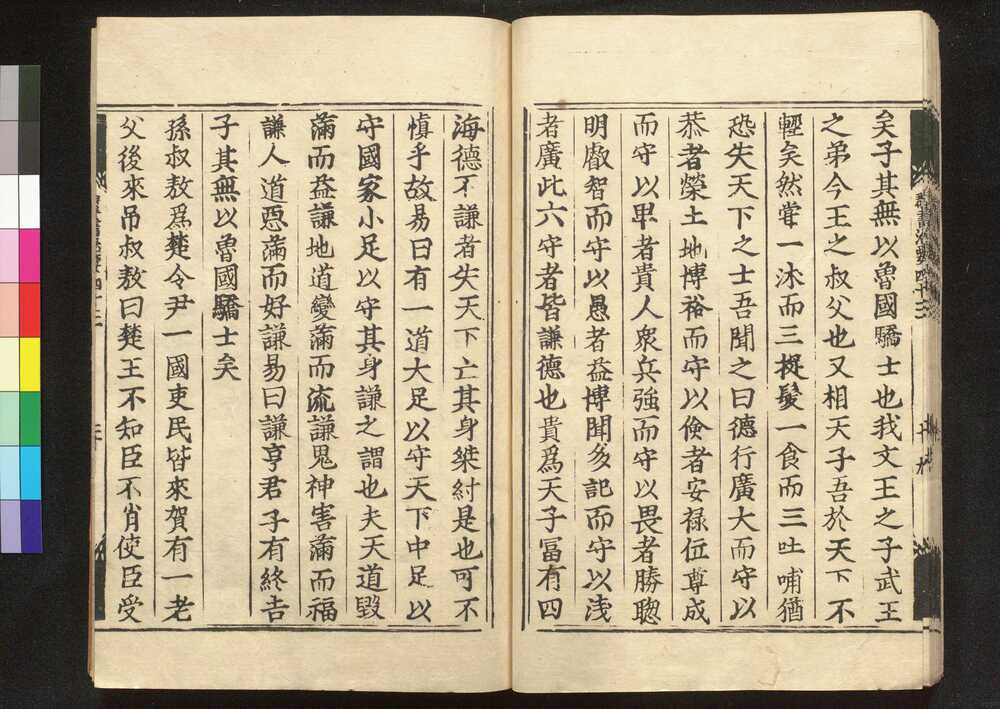 矣子其無以魯國驕士也我文王之子武王
之弟今王之叔父也又相天子吾於天下不
輕矣然甞一沐而三捉髮一食而三吐哺猶
恐失天下之士吾聞之曰德行廣大而守以
恭者榮土地博裕而守以儉者安禄位尊成
而守以卑者貴人衆兵強而守以畏者勝聦
明叡智而守以愚者益博聞多記而守以浅
者廣此六守者皆謙德也貴爲天子冨有四
海德不謙者失天下亡其身桀紂是也可不
慎乎故易曰有一道大足以守天下中足以
守國家小足以守其身謙之謂也夫天道毀
滿而益謙地道變滿而流謙鬼神害滿而福
謙人道惡滿而好謙易曰謙亨君子有終吉
子其無以魯國驕士矣
孫叔敖爲楚令尹一國吏民皆來賀有一老
父後來吊叔敖曰楚王不知臣不肖使臣受